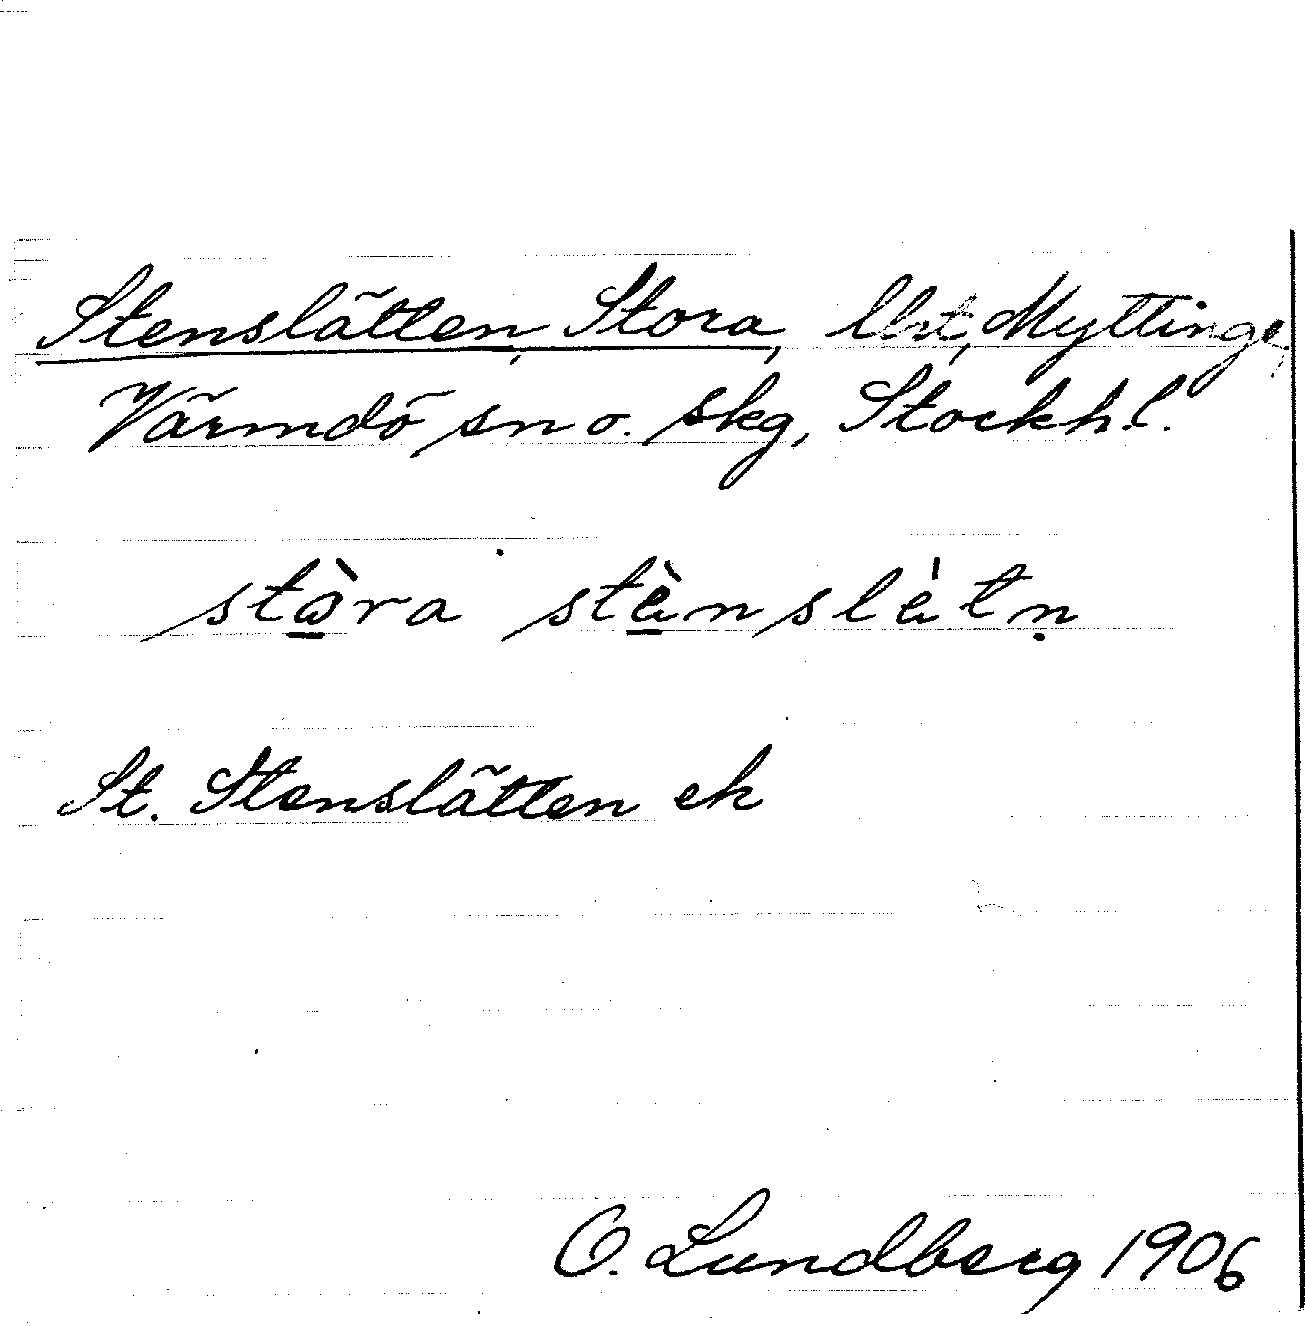 Stenslätten, Stora, Ust, Myttinge,
Värmdö sn o. skg, Stockh.l.
stò̱ra stè̱nslètṇ
St. Stenslätten ek
O. Lundberg 1906